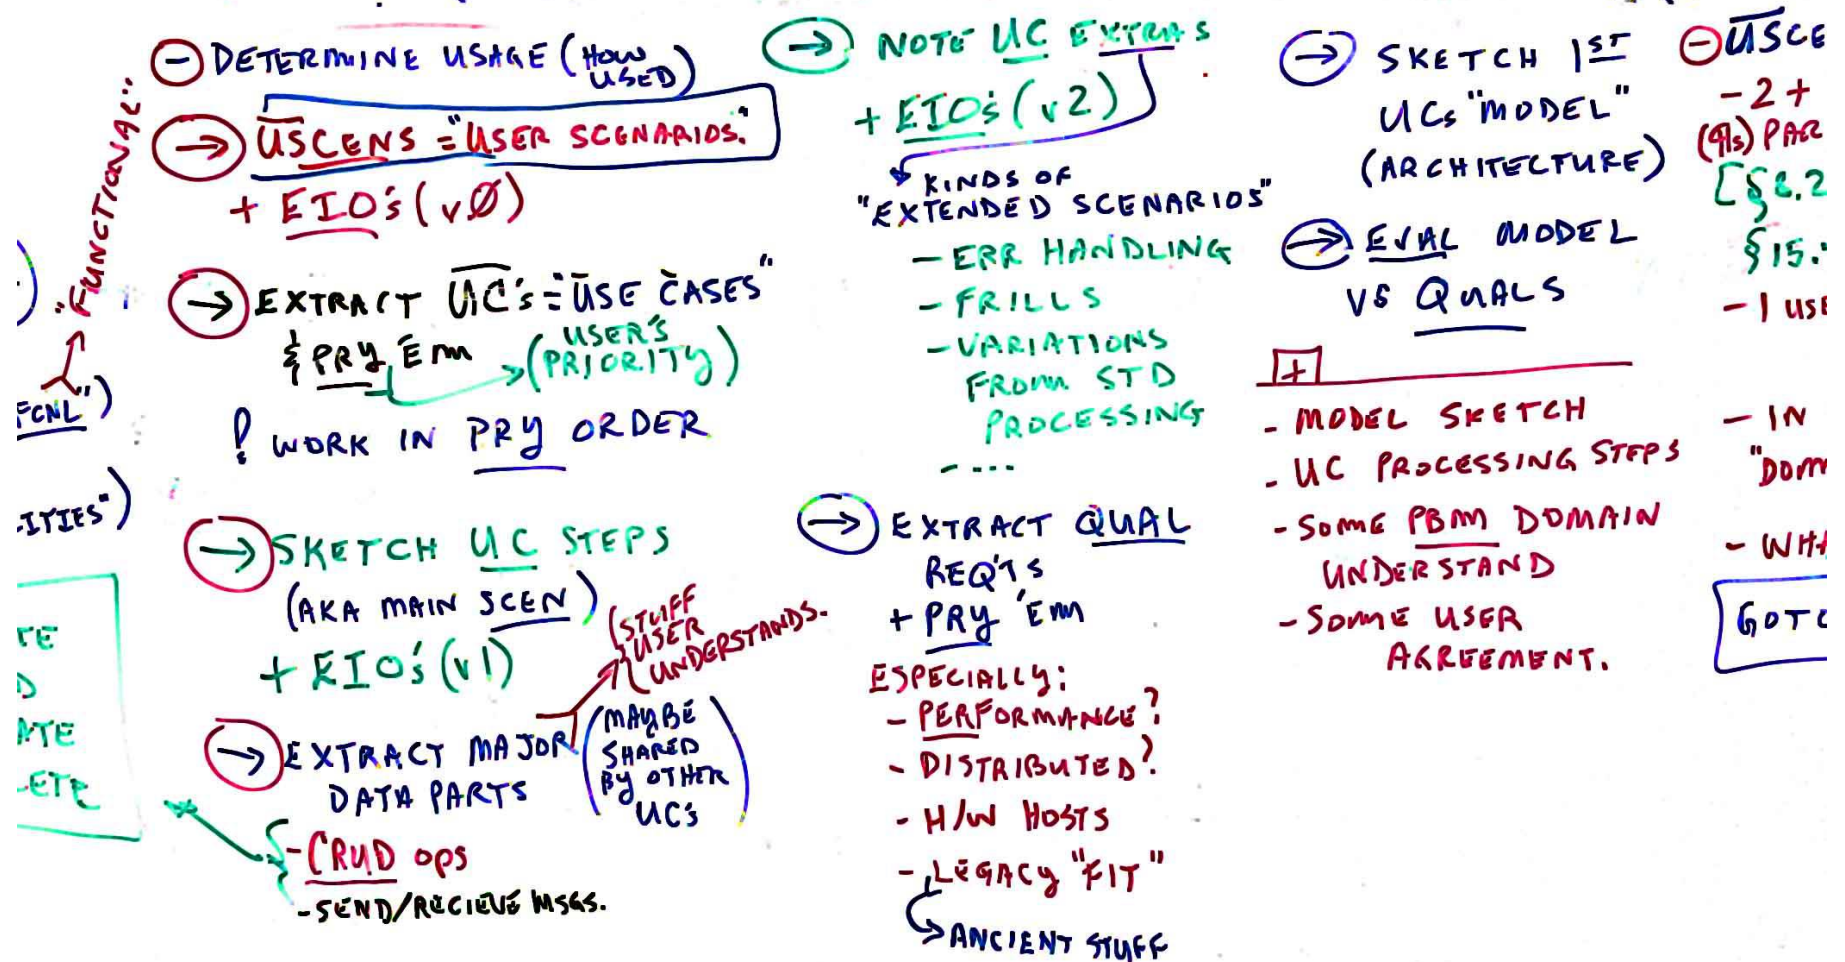 "FUNCTIONAL"
FCNL")
-ITIES")
TE
D
ATE
-ETE
DETERMINE USAGE (HOW
USED)
→ USCENS = "USER SCENARIOS."
+ EIO's (vØ)
→ EXTRACT UC's = "USE CASES"
& PRY 'EM → (USER'S
PRIORITY)
! WORK IN PRY ORDER
→ SKETCH UC STEPS
(AKA MAIN SCEN)
+ EIO's (v1)
(STUFF
USER
UNDERSTANDS.
→ EXTRACT MAJOR
DATA PARTS
(MAYBE
SHARED
BY OTHER
UC's)
- CRUD OPS
- SEND/RECIEVE MSGS.
→ NOTE UC EXTRAS
+ EIO's (v2)
KINDS OF
"EXTENDED SCENARIOS"
- ERR HANDLING
- FRILLS
- VARIATIONS
FROM STD
PROCESSING
- ....
→ EXTRACT QUAL
REQ'TS
+ PRY 'EM
ESPECIALLY:
- PERFORMANCE?
- DISTRIBUTED?
- H/W HOSTS
- LEGACY "FIT"
→ ANCIENT STUFF
→ SKETCH 1ST
UCs "MODEL"
(ARCHITECTURE)
→ EVAL MODEL
VS QUALS
+
- MODEL SKETCH
- UC PROCESSING STEPS
- SOME PBM DOMAIN
UNDERSTAND
- SOME USER
AGREEMENT.
USCE
- 2 +
PAR
[§8.2
§15.
- 1 USE
- IN
"DOM
- WHA
GOTC